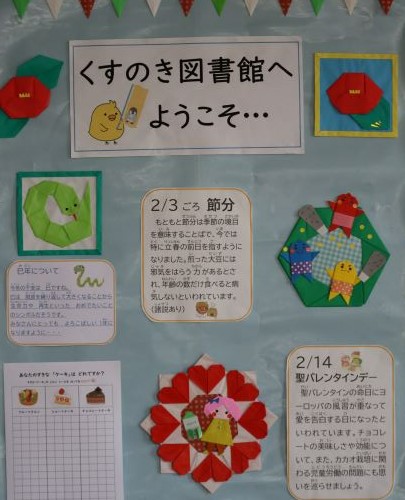 くすのき図書館へ
ようこそ…
2/3ごろ 節分
もともと節分は季節の境目
を意味することばで、今では
特に立春の前日を指すように
なりました。煎った大豆には
邪気をはらう力があるとさ
れ、年齢の数だけ食べると病
気しないといわれています。
(諸説あり)
巳年について
今年の干支は、巳ですね。
のシンボルだそうです。
なりますように・・・
あなたの好きな「ケーキ」は どれですか?
2/14
聖バレンタインデー
聖バレンタインの命日にヨ
ーロッパの風習が重なって
愛を告白する日になったと
いわれています。チョコレー
トの美味しさや効能につ
いて、また、カカオ栽培に関
わる児童労働の問題にも思
いを巡らせましょう。